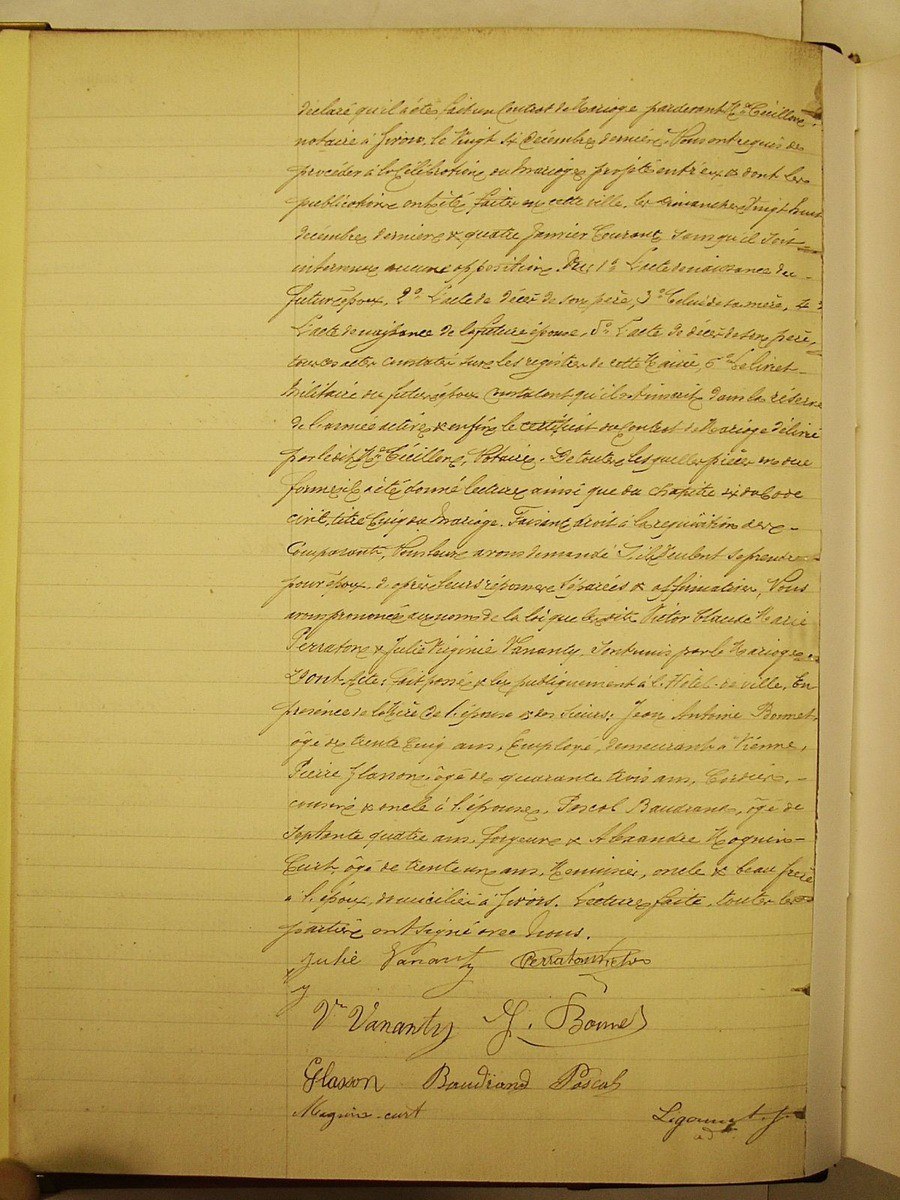 déclaré qu'il a été fait un Contrat de Mariage pardevant Me Cécillon,
notaire à Givors, le Vingt six décembre dernier, Nous ont requis de
procéder à la Célébration du Mariage projeté entr'eux & dont les
publications ont été faites en cette ville, les dimanches Vingt huit
décembre dernier & quatre Janvier Courant, sans qu'il soit
intervenu aucune opposition. Vu: 1º L'acte de naissance du
futur époux, 2º L'acte de décès de son père, 3º Celui de sa mère, 4º
L'acte de naissance de la future épouse, 5º L'acte de décès de son père,
tous ces actes constatés sur les registres de cette Mairie, 6º Le livret
Militaire du futur époux constatant qu'il est inscrit dans la réserve
de l'armée active & enfin le certificat du Contrat de Mariage délivré
par le dit Me Cécillon, Notaire. De toutes lesquelles pièces en due
forme il a été donné lecture ainsi que du chapitre six du Code
civil, titre Cinq du Mariage. Faisant droit à la réquisition des
Comparants, Nous leur avons demandé s'ils veulent se prendre
pour époux, d'après leurs réponses séparées & affirmatives, Nous
avons prononcé au nom de la loi que les dits Victor Claude Marie
Perraton & Julie Virginie Vananty, sont unis par le Mariage.
Dont acte: fait, passé & lu publiquement à l'Hôtel-de-ville, En
présence de la Mère de l'épouse & des Sieurs: Jean Antoine Bonnet,
âgé de trente Cinq ans, Employé, demeurant à Vienne,
Pierre Glasson, âgé de quarante trois ans, Cordier,
cousin & oncle à l'épouse, Pascal Baudrand, âgé de
Septante quatre ans, forgeur & Alexandre Mognin-
Curt, âgé de trente un ans, Menuisier, oncle & beau frère
à l'époux, domiciliés à Givors. Lecture faite, toutes les
parties ont signé avec Nous.
Julie Vananty Perraton
Ve Vananty J. Bonnet
Glasson Baudrand Pascal
Mognin-curt